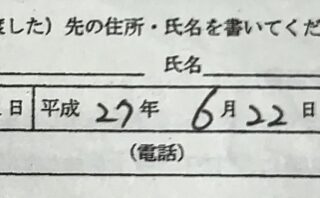 した）先の住所・氏名を書いてくだ
氏名
日 平成 27年 6月22日
（電話）